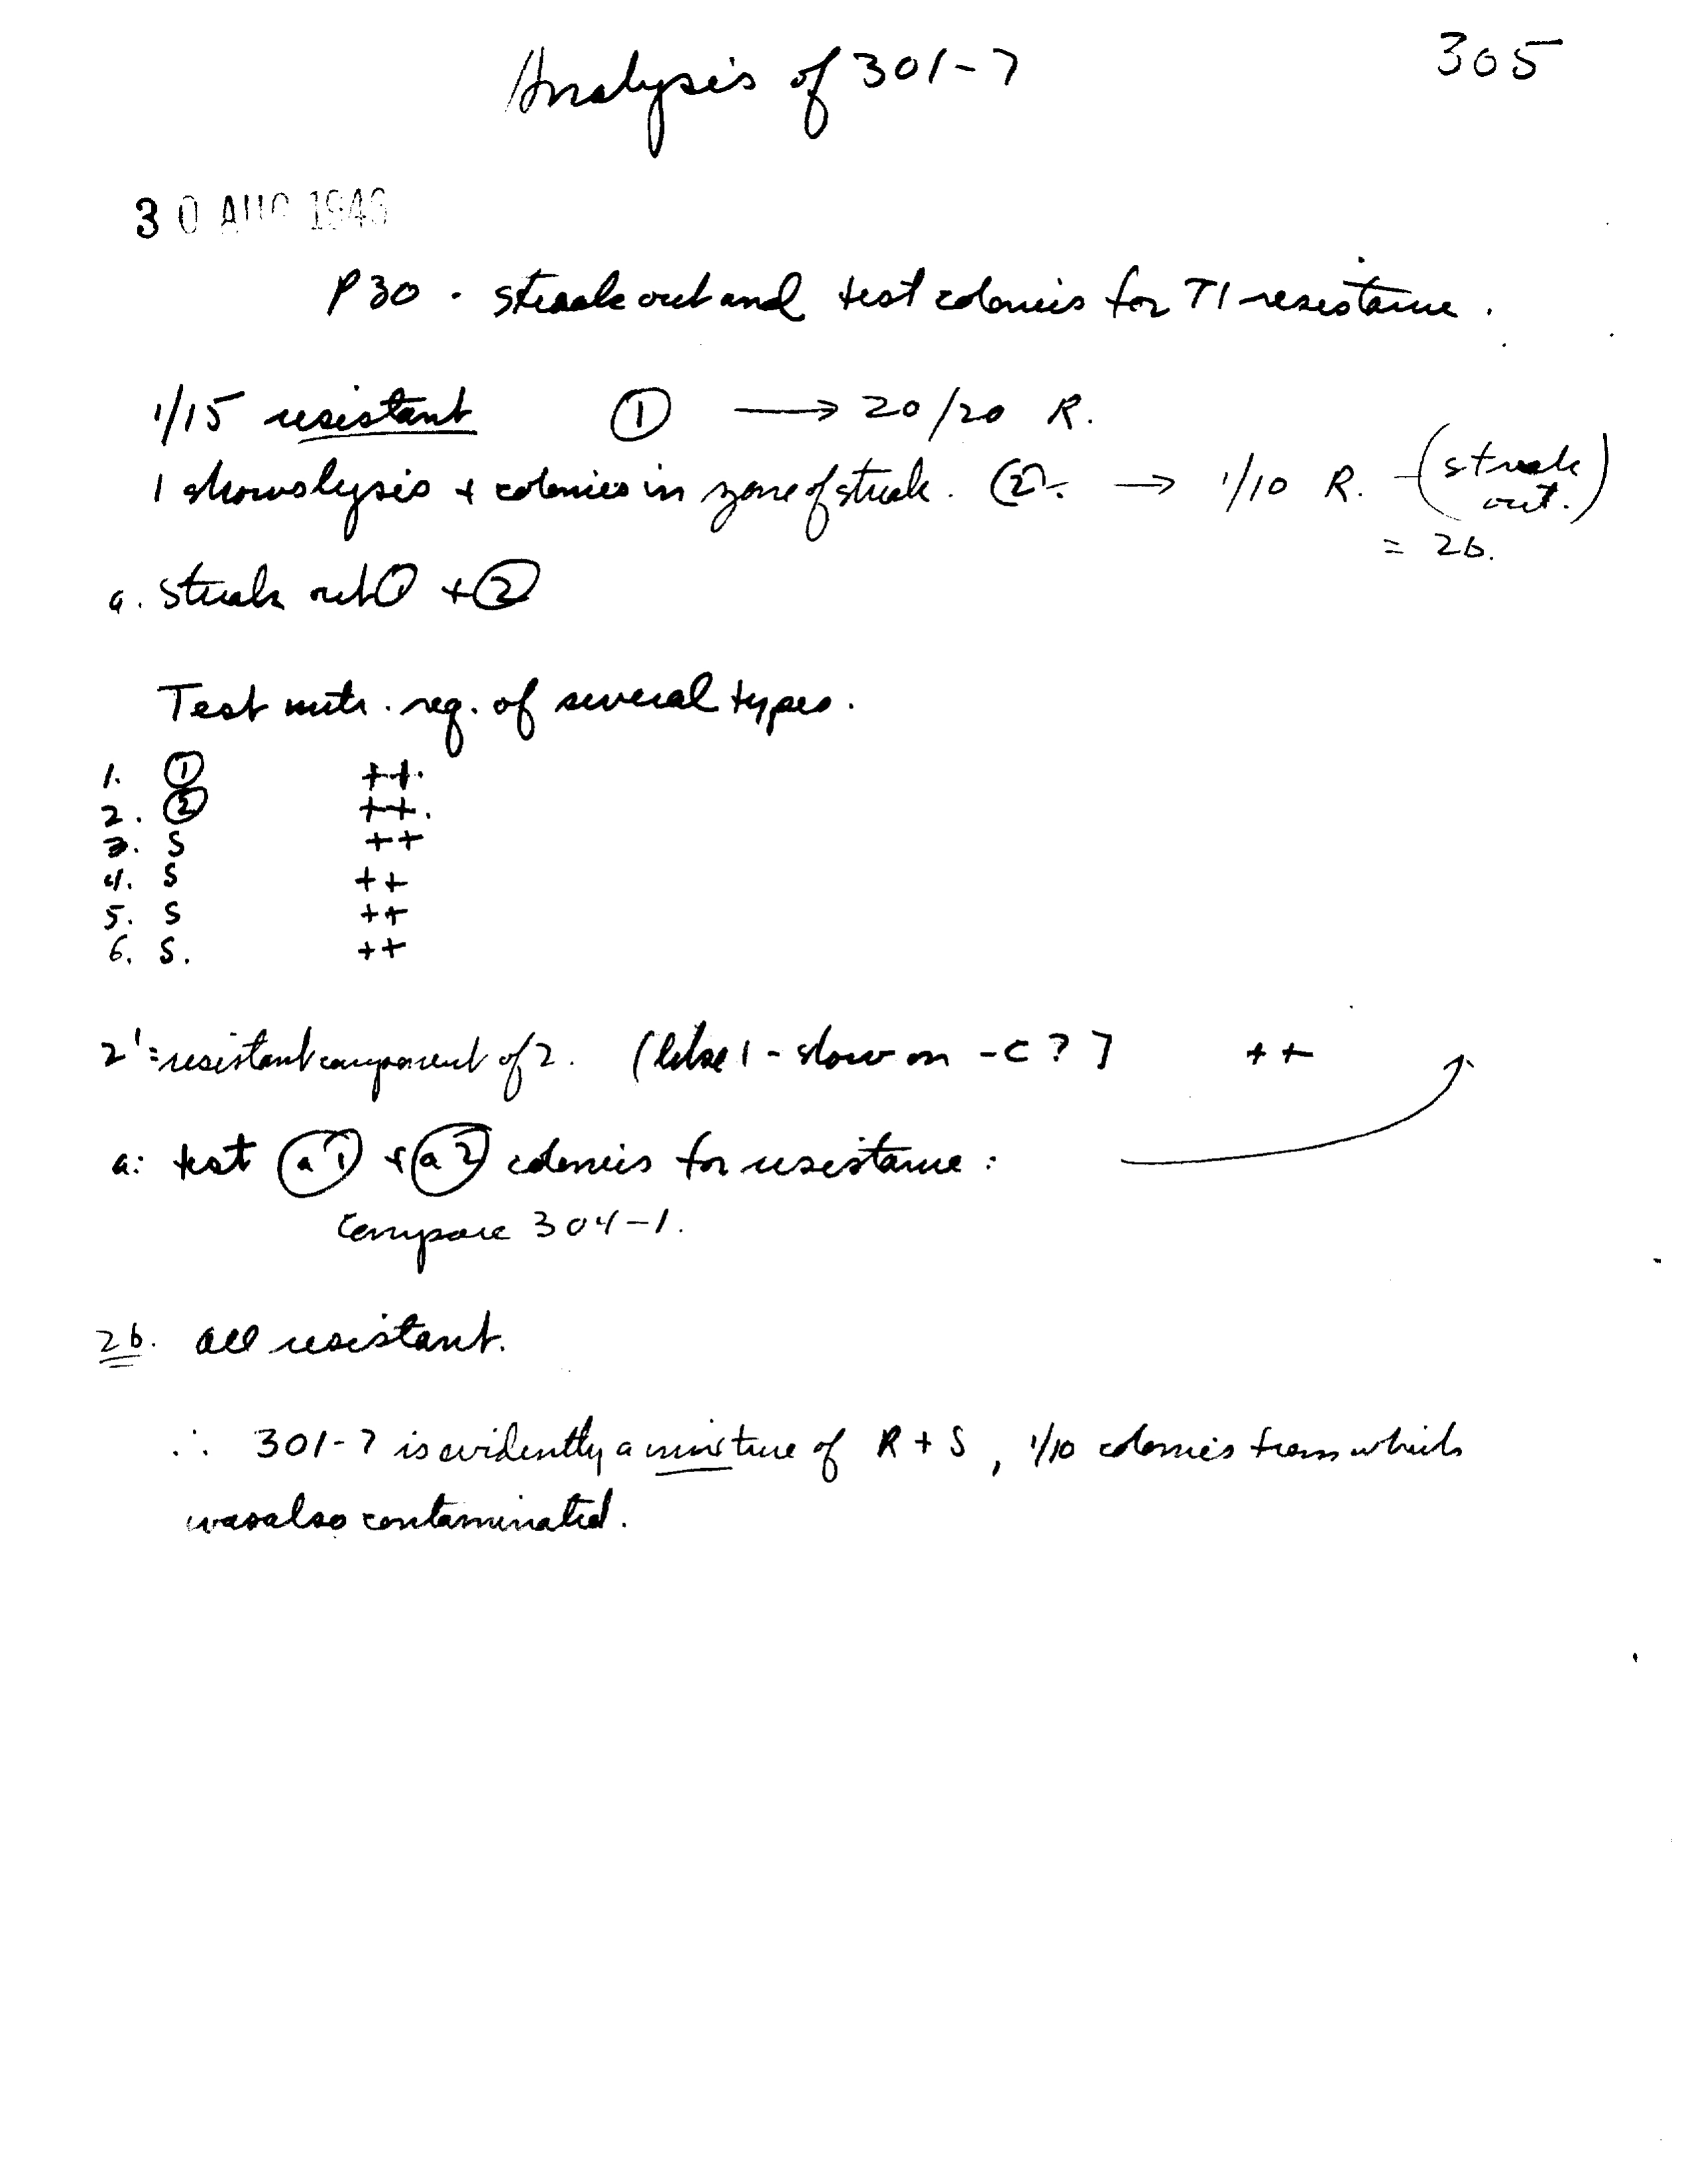 Analysis of 301-7
305
30 AUG 1946
P30 - streak out and test colonies for T1 resistance.
1/15 resistant ① → 20/20 R.
1 shows lysis + colonies in zone of streak. ②. → 1/10 R. - (streak out.)
= 2b.
a. Streak out ① + ②
Test nutr. req. of several types.
1. ① ++.
2. ② ++.
3. S ++
4. S ++
5. S ++
6. S. ++
2' = resistant component of 2. (like 1 - slow on -C ?) ++
a: test (a 1) + (a 2) colonies for resistance:
Compare 304-1.
2b. all resistant.
∴ 301-7 is evidently a mixture of R + S, 1/10 colonies from which
was also contaminated.